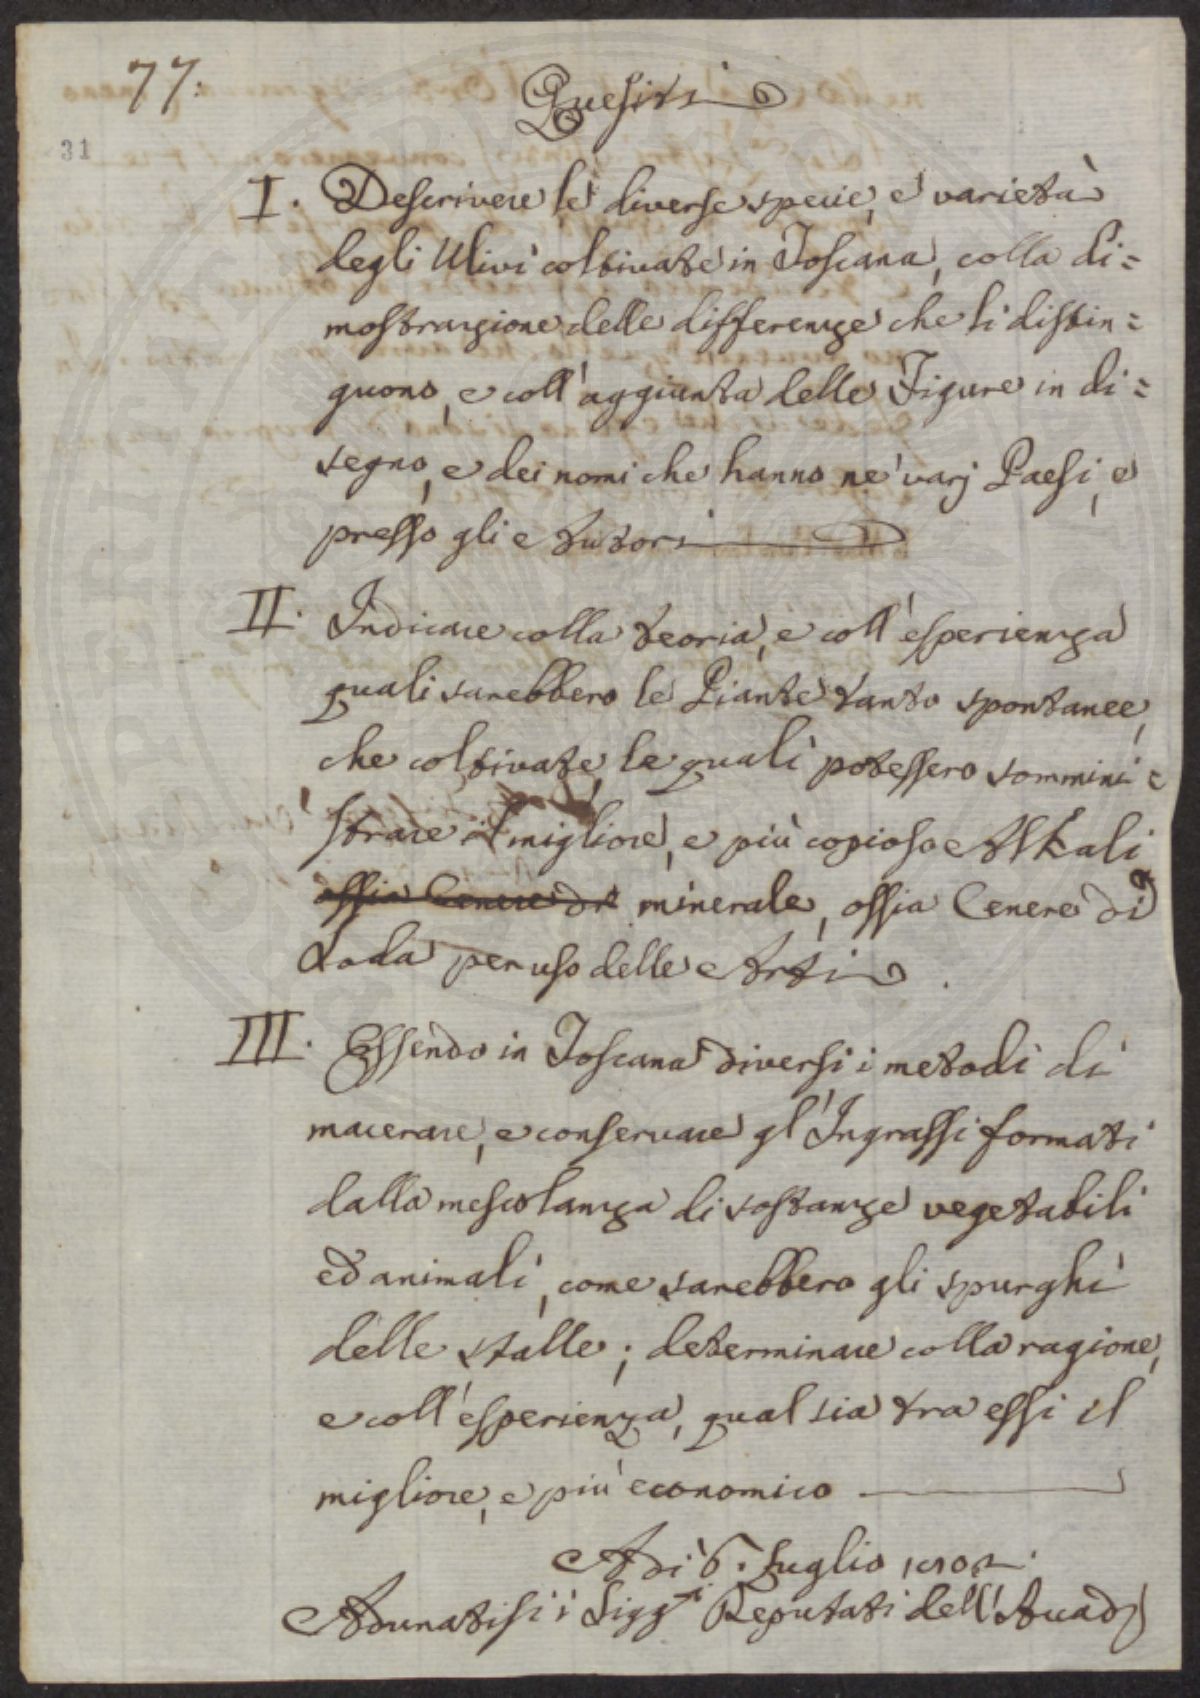 77.
31
Quesiti
I. Descrivere le diverse specie, e varietà
degli Ulivi coltivate in Toscana, colla di=
mostrazione delle differenze che li distin=
guono, e coll'aggiunta delle Figure in di=
segno, e dei nomi che hanno ne' varj Paesi, e
presso gli Autori
II. Indicare colla teoria, e coll'esperienza
quali sarebbero le Piante tanto spontanee,
che coltivate, le quali potessero sommini=
strare il migliore, e più copioso Alkali
ossia Cenere di minerale, ossia Cenere di
Soda per uso delle Arti
III. Essendo in Toscana diversi i metodi di
macerare, e conservare gl'Ingrassi formati
dalla mescolanza di sostanze vegetabili
ed animali, come sarebbero gli spurghi
delle stalle; determinare colla ragione,
e coll'esperienza, qual sia tra essi il
migliore, e più economico
Adì 6. Luglio
Adunatisi i Sigg.ri Deputati dell'Accad.